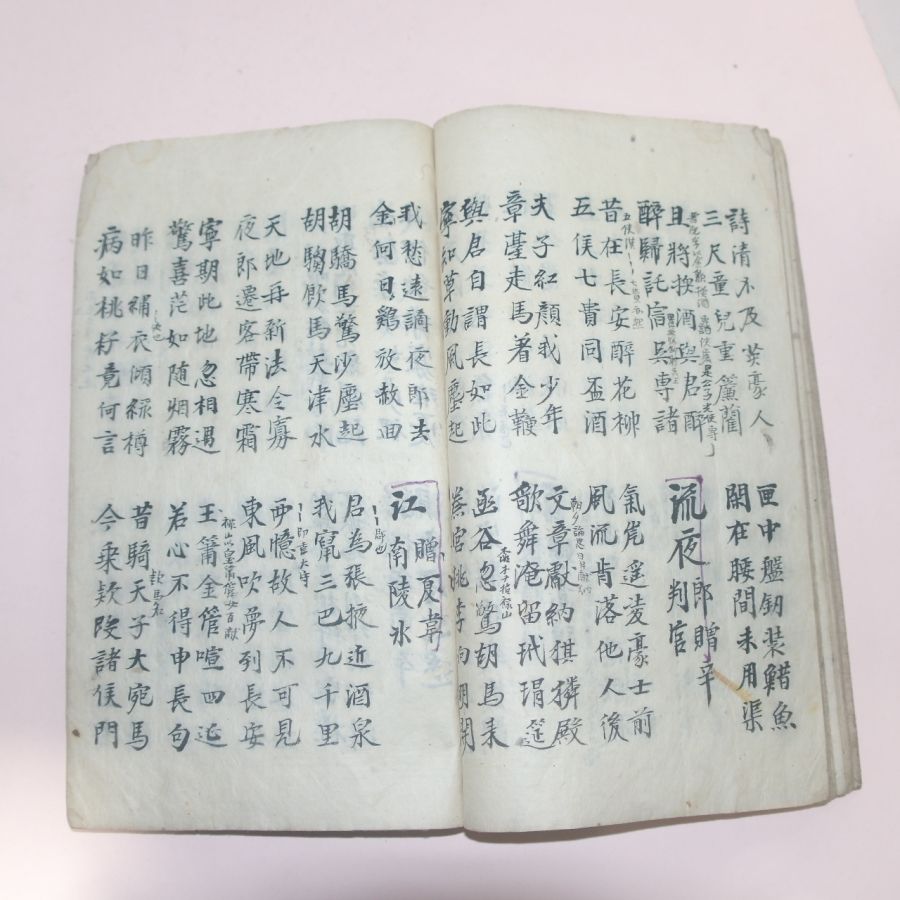 詩清不及英豪人
三尺童兒重簾藺
匣中盤釰装鯌魚
閑在腰間未用渠
且將换酒與君醉
醉歸託宿吳專諸
流夜郎贈辛
判官
昔在長安醉花柳
五侯七貴同盃酒
氣岸遥凌豪士前
風流肯落他人後
夫子紅顏我少年
章臺走馬著金鞭
文章獻納猉獜殿
歌舞淹留玳瑁筵
與君自謂長如此
寧知草動風塵起
函谷忽驚胡馬来
秦宮桃李向明開
我愁遠謫夜郎去
金何日鷄放赦回
江贈夏韋
南陵氷
胡驕馬驚沙塵起
胡騶飲馬天津水
君為張掖近酒泉
我竄三巴九千里
天地再新法令寡
夜郎遷客帶寒霜
西憶故人不可見
東風吹夢到長安
寧期此地忽相遇
驚喜茫如随烟霧
玉簫金管喧四筵
若心不得申長句
昨日補衣傾綠樽
病如桃籽竟何言
昔騎天子大宛馬
今乘欵段諸侯門